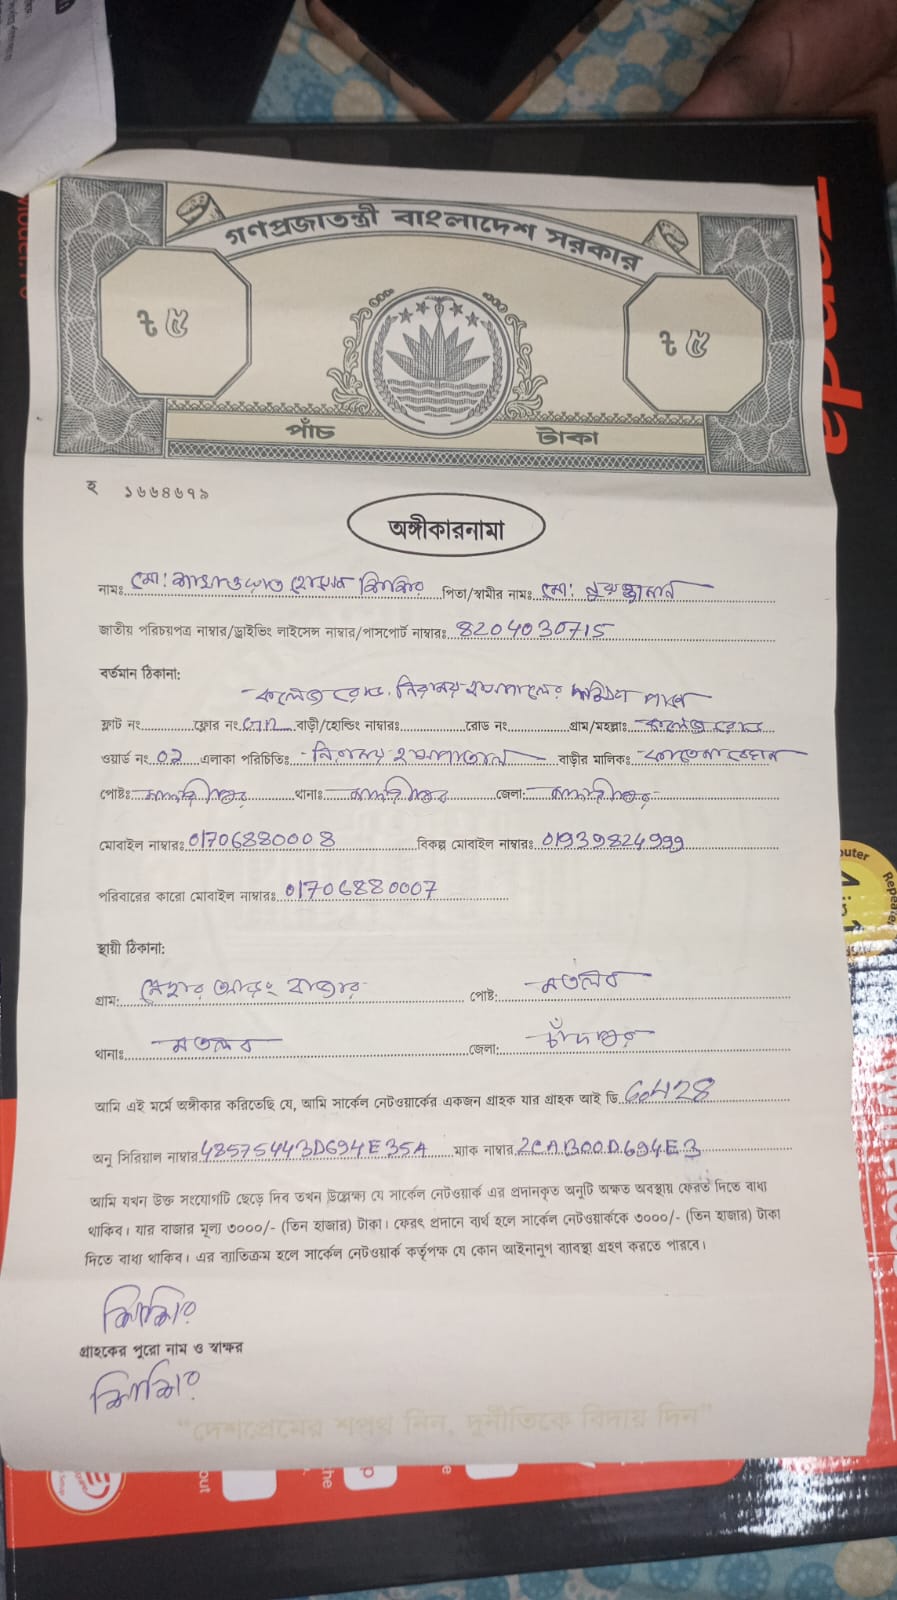 গণপ্রজাতন্ত্রী বাংলাদেশ সরকার
৳ ৫
৳ ৫
পাঁচ টাকা
হ ১৬৬৪৬৭৯
অঙ্গীকারনামা
নামঃ মো: হোসেন পিতা/স্বামীর নামঃ মো:
জাতীয় পরিচয়পত্র নাম্বার/ড্রাইভিং লাইসেন্স নাম্বার/পাসপোর্ট নাম্বারঃ 8204030715
বর্তমান ঠিকানা:
কলেজ রোড, নিরাময় হাসপাতালের পাশে
ফ্লাট নং ফ্লোর নং বাড়ী/হোল্ডিং নাম্বারঃ রোড নং গ্রাম/মহল্লাঃ কলেজ রোড
ওয়ার্ড নং 02 এলাকা পরিচিতিঃ নিরাময় হাসপাতাল বাড়ীর মালিকঃ
পোষ্টঃ থানাঃ জেলা:
মোবাইল নাম্বারঃ 01706880008 বিকল্প মোবাইল নাম্বারঃ 01939824999
পরিবারের কারো মোবাইল নাম্বারঃ 01706880007
স্থায়ী ঠিকানা:
গ্রাম: বাজার পোষ্ট: মতলব
থানাঃ মতলব জেলা: চাঁদপুর
আমি এই মর্মে অঙ্গীকার করিতেছি যে, আমি সার্কেল নেটওয়ার্কের একজন গ্রাহক যার গ্রাহক আই ডি
অনু সিরিয়াল নাম্বার 485754443D694E35A ম্যাক নাম্বার 2CAB00D694E3
আমি যখন উক্ত সংযোগটি ছেড়ে দিব তখন উল্লেক্ষা যে সার্কেল নেটওয়ার্ক এর প্রদানকৃত অনুটি অক্ষত অবস্থায় ফেরত দিতে বাধ্য
থাকিব। যার বাজার মূল্য ৩০০০/- (তিন হাজার) টাকা। ফেরৎ প্রদানে ব্যর্থ হলে সার্কেল নেটওয়ার্ককে ৩০০০/- (তিন হাজার) টাকা
দিতে বাধ্য থাকিব। এর ব্যতিক্রম হলে সার্কেল নেটওয়ার্ক কর্তৃপক্ষ যে কোন আইনানুগ ব্যাবস্থা গ্রহণ করতে পারবে।
গ্রাহকের পুরো নাম ও স্বাক্ষর
“দেশপ্রেমের শপথ নিন, দুর্নীতিকে বিদায় দিন”